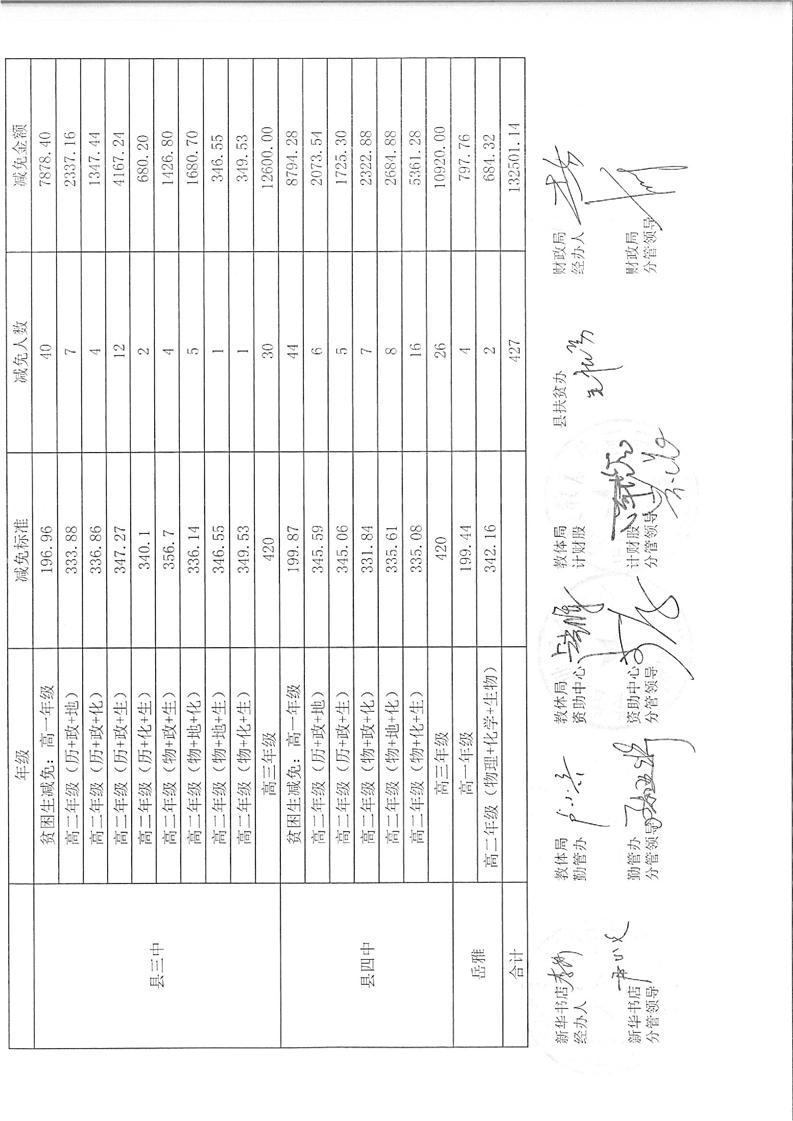 年级 减免标准 减免人数 减免金额
县三中
贫困生减免：高一年级 196.96 40 7878.40
高二年级（历+政+地） 333.88 7 2337.16
高二年级（历+政+化） 336.86 4 1347.44
高二年级（历+政+生） 347.27 12 4167.24
高二年级（历+化+生） 340.1 2 680.20
高二年级（物+政+生） 356.7 4 1426.80
高二年级（物+地+化） 336.14 5 1680.70
高二年级（物+地+生） 346.55 1 346.55
高二年级（物+化+生） 349.53 1 349.53
高三年级 420 30 12600.00
县四中
贫困生减免：高一年级 199.87 44 8794.28
高二年级（历+政+地） 345.59 6 2073.54
高二年级（历+政+生） 345.06 5 1725.30
高二年级（物+政+化） 331.84 7 2322.88
高二年级（物+地+化） 335.61 8 2684.88
高二年级（物+化+生） 335.08 16 5361.28
高三年级 420 26 10920.00
岳雅
高一年级 199.44 4 797.76
高二年级（物理+化学+生物） 342.16 2 684.32
合计 427 132501.14
新华书店 教体局 教体局 教体局 县扶贫办 财政局
经办人 勤管办 资助中心 计财股 经办人
新华书店 勤管办 资助中心 计财股 财政局
分管领导 分管领导 分管领导 分管领导 分管领导